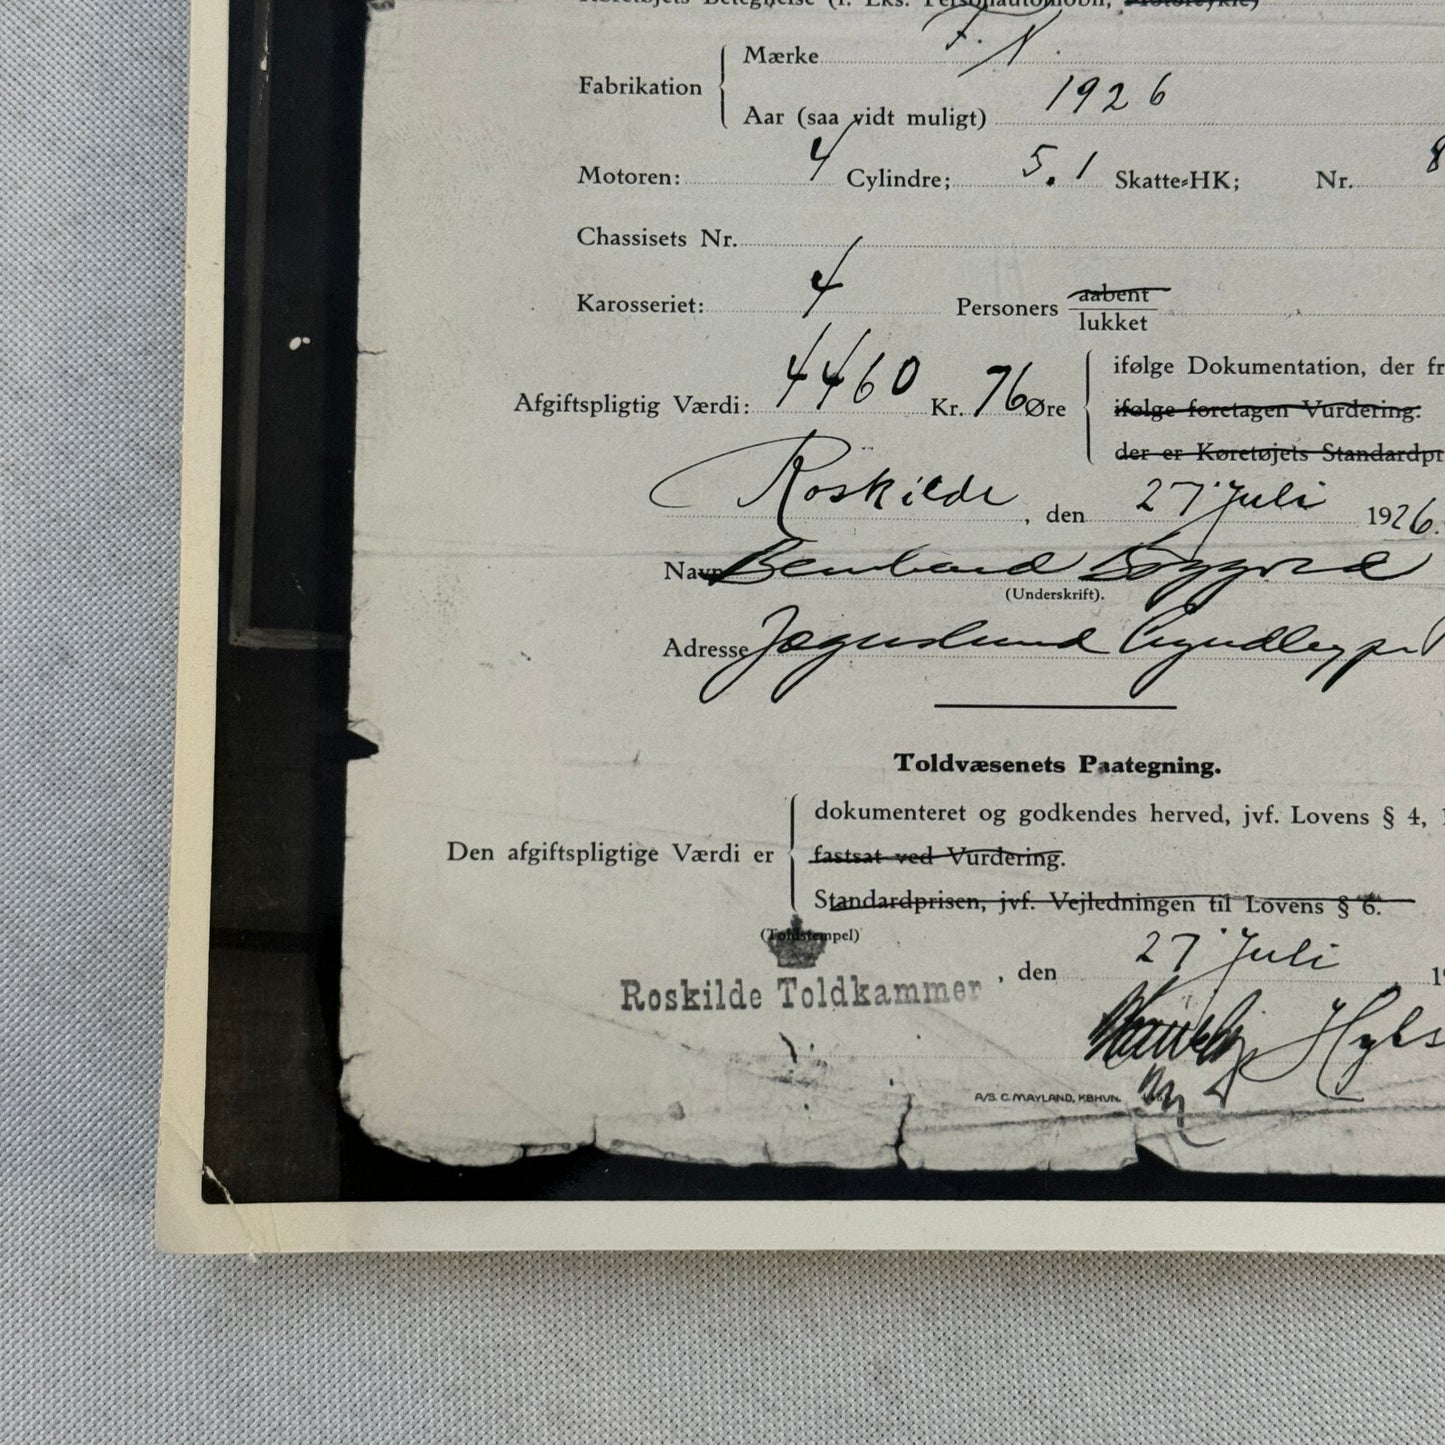 Køretøjets Betegnelse (f. Eks. Personautomobil, Motorcykle)
Fabrikation
Mærke F. N.
Aar (saa vidt muligt) 1926
Motoren: 4 Cylindre; 5.1 Skatte-HK; Nr. 8
Chassisets Nr.
Karosseriet: 4 Personers aabent
lukket
ifølge Dokumentation, der fr
Afgiftspligtig Værdi: 4460 Kr. 76 Øre ifølge foretagen Vurdering.
der er Køretøjets Standardpr
Roskilde, den 27' Juli 1926.
Navn
(Underskrift).
Adresse
Toldvæsenets Paategning.
dokumenteret og godkendes herved, jvf. Lovens § 4, 1
Den afgiftspligtige Værdi er fastsat ved Vurdering.
Standardprisen, jvf. Vejledningen til Lovens § 6.
(Toldstempel)
Roskilde Toldkammer , den 27' Juli 19
A/S. C. MAYLAND, KBHVN.